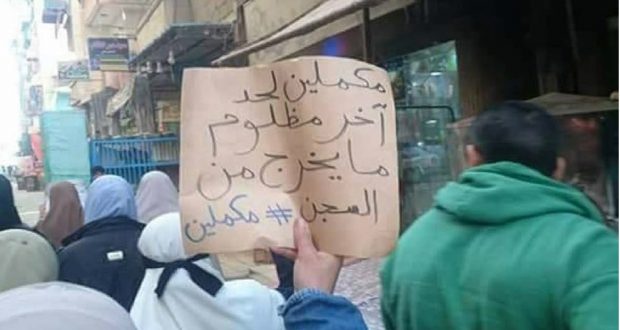 مكملين لحد
آخر مظلوم
ما يخرج من
السجن #مكملين